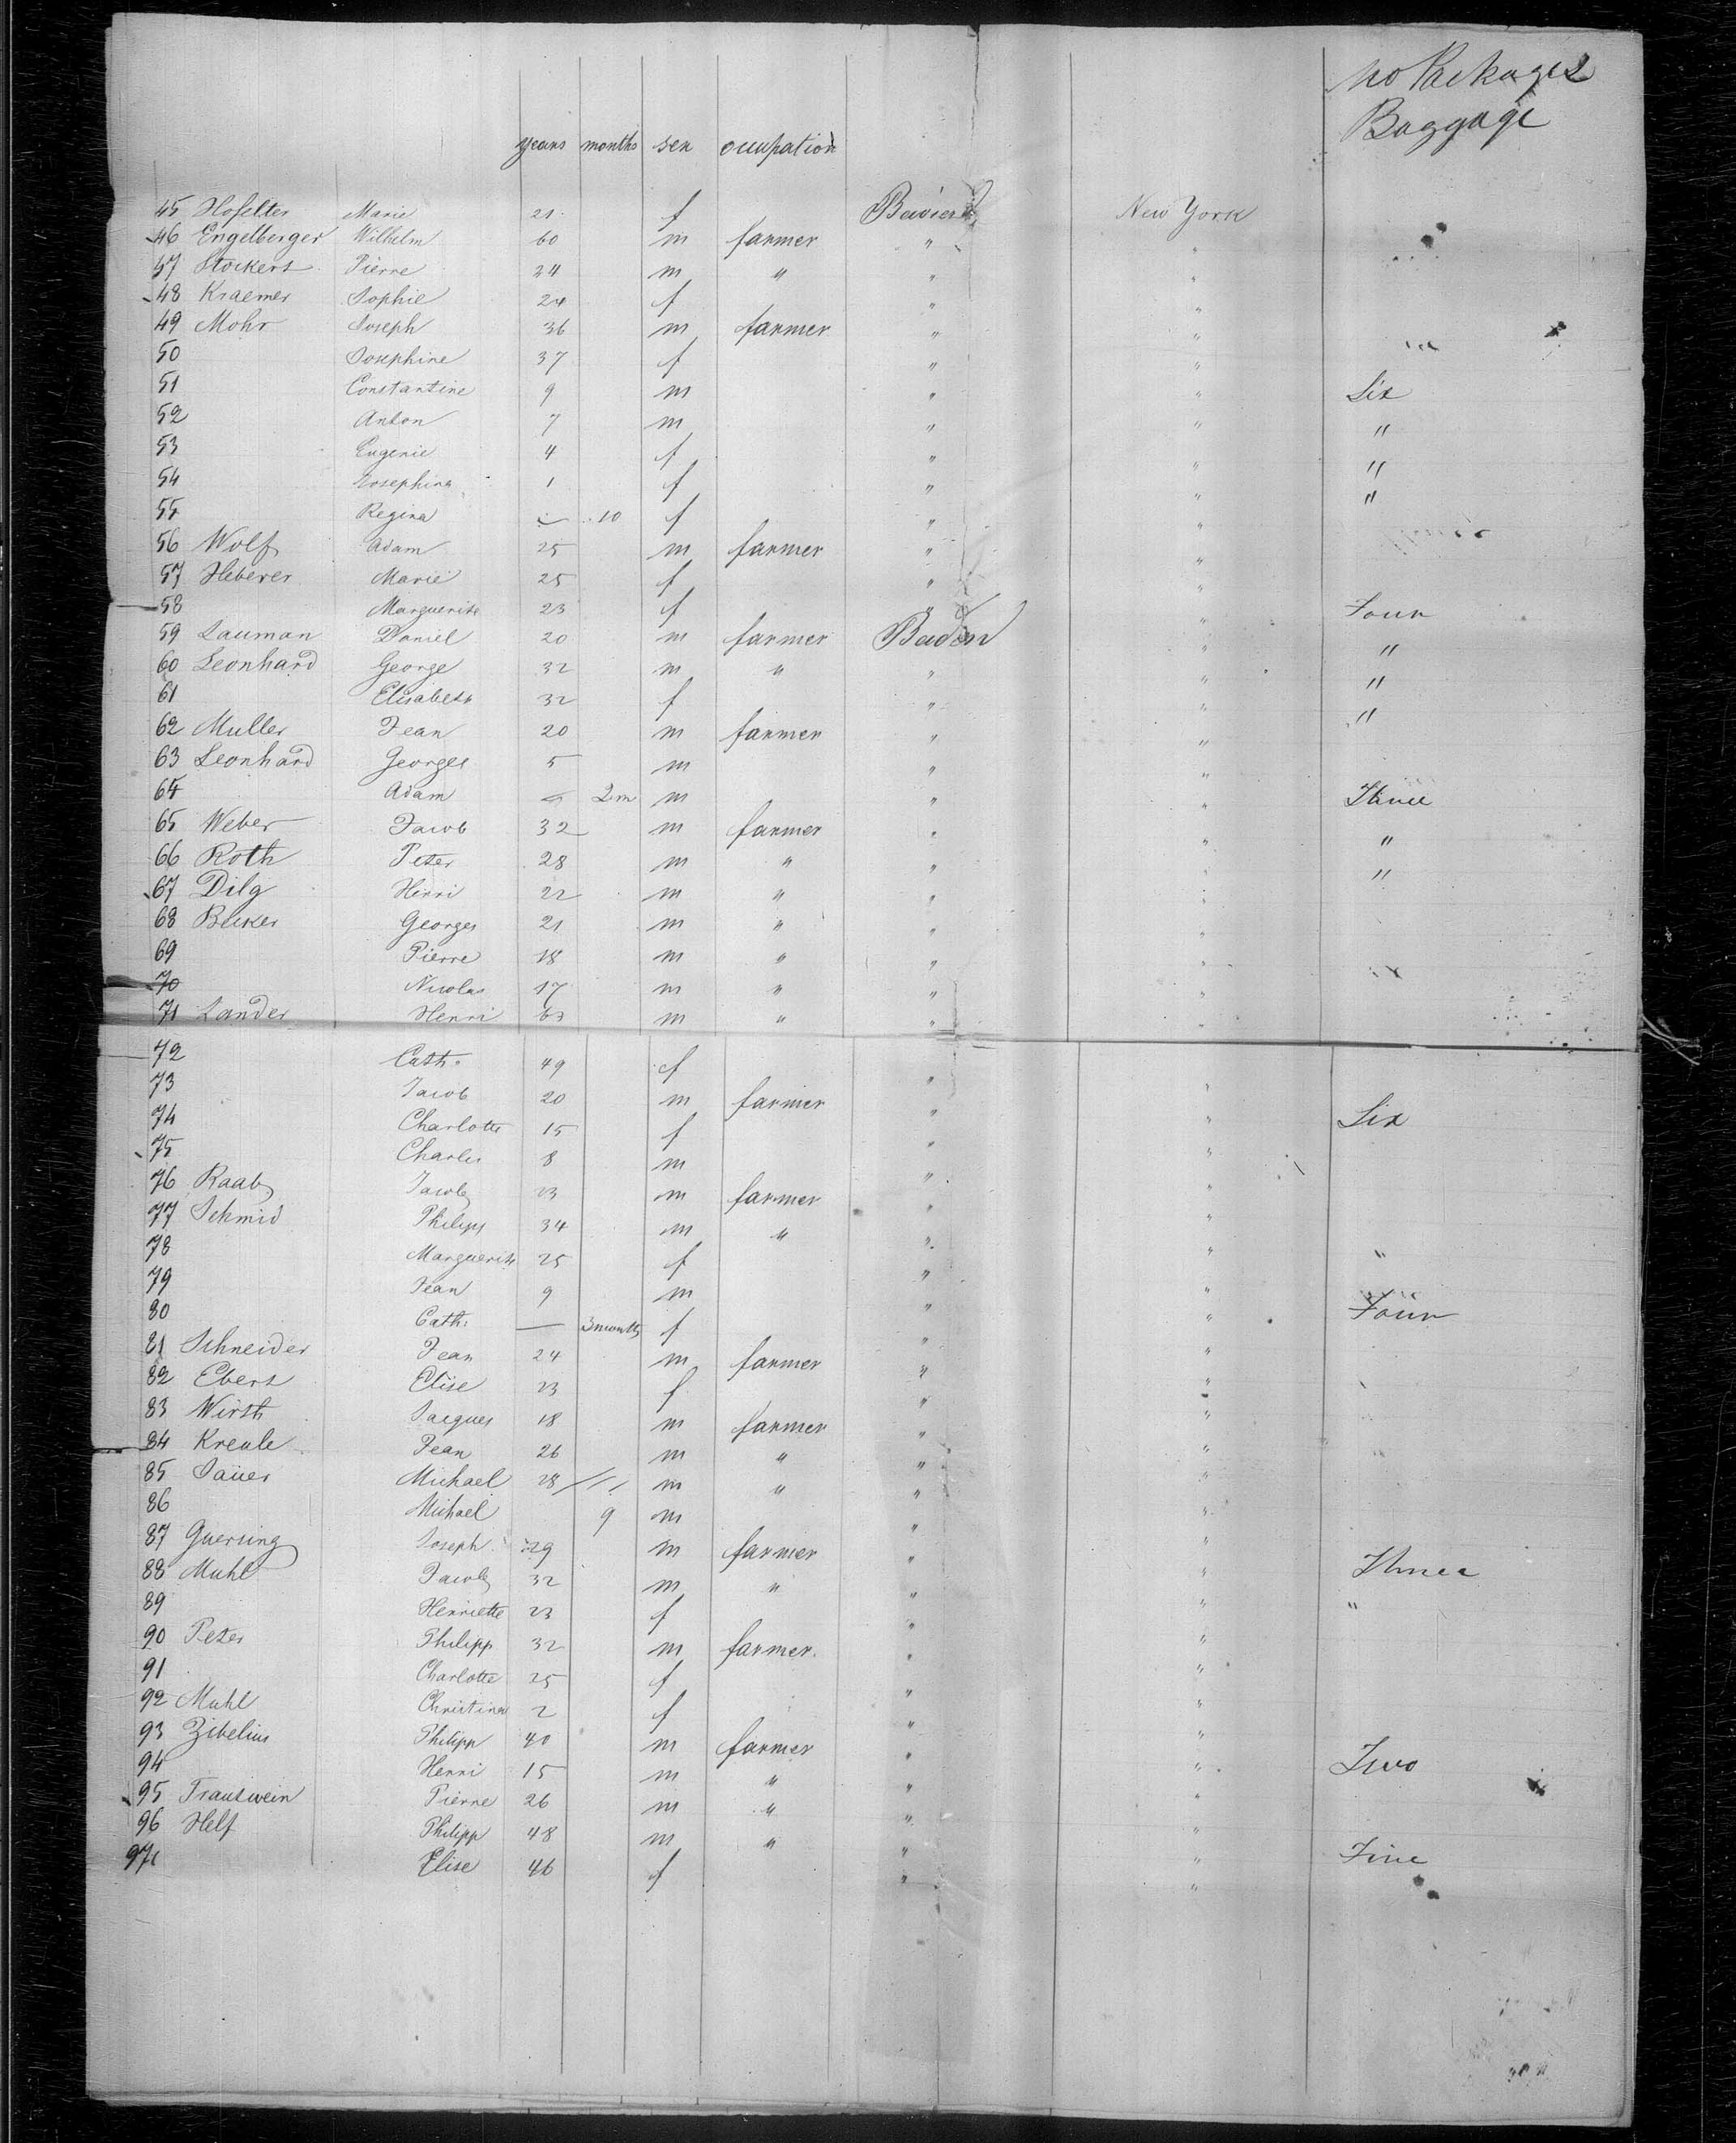 No Packages
Baggage
years months sex occupation
45 Hofelter Marie 21 f Bavière New York
46 Engelberger Wilhelm 60 m farmer " "
47 Stockert Pierre 24 m " " "
48 Kraemer Sophie 24 f " "
49 Mohr Joseph 36 m farmer " "
50 Josephine 37 f " "
51 Constantine 9 m " " Six
52 Anton 7 m " " "
53 Eugenie 4 f " " "
54 Josephina 1 f " " "
55 Regina 10 f " "
56 Wolf Adam 25 m farmer " "
57 Heberer Marie 25 f " "
58 Marguerite 23 f " " Four
59 Lauman Daniel 20 m farmer Baden " "
60 Leonhard George 32 m " " " "
61 Elisabeth 32 f " " "
62 Muller Jean 20 m farmer " "
63 Leonhard Georges 5 m " "
64 Adam 2m m " " Three
65 Weber Jacob 32 m farmer " " "
66 Roth Peter 28 m " " " "
67 Dilg Henri 22 m " " "
68 Becker Georges 21 m " " "
69 Pierre 18 m " " "
70 Nicolas 17 m " " "
71 Lander Henri 63 m " " "
72 Cath. 49 f " "
73 Jacob 20 m farmer " "
74 Charlotte 15 f " " Six
75 Charles 8 m " "
76 Raab Jacob 23 m farmer " "
77 Schmid Philipp 34 m " " "
78 Marguerite 25 f " " "
79 Jean 9 m " "
80 Cath: — 3 months f " " Four
81 Schneider Jean 24 m farmer " "
82 Ebert Elise 23 f " "
83 Wirth Jacques 18 m farmer " "
84 Kreule Jean 26 m " " "
85 Sauer Michael 28 m " " "
86 Michael 9 m " "
87 Guersing Joseph 29 m farmer " "
88 Muhl Jacob 32 m " " " Three
89 Henriette 23 f " " "
90 Peter Philipp 32 m farmer " "
91 Charlotte 25 f " "
92 Muhl Christina 2 f " "
93 Zibelius Philipp 40 m farmer " "
94 Henri 15 m " " " Two
95 Trautwein Pierre 26 m " " "
96 Helf Philipp 48 m " " "
97 Elise 46 f " " Five